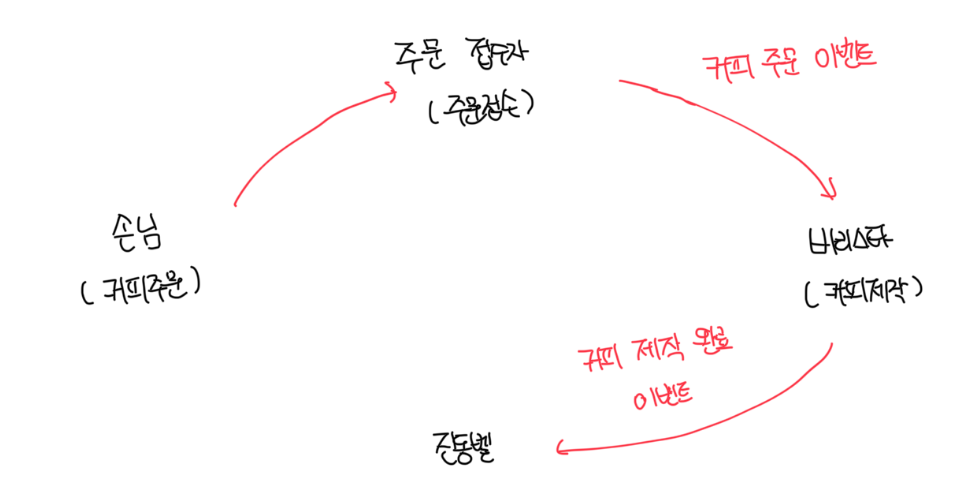 주문 접수자
(주문접수)
커피 주문 이벤트
손님
(커피주문)
바리스타
(커피제작)
커피 제작 완료
이벤트
진동벨